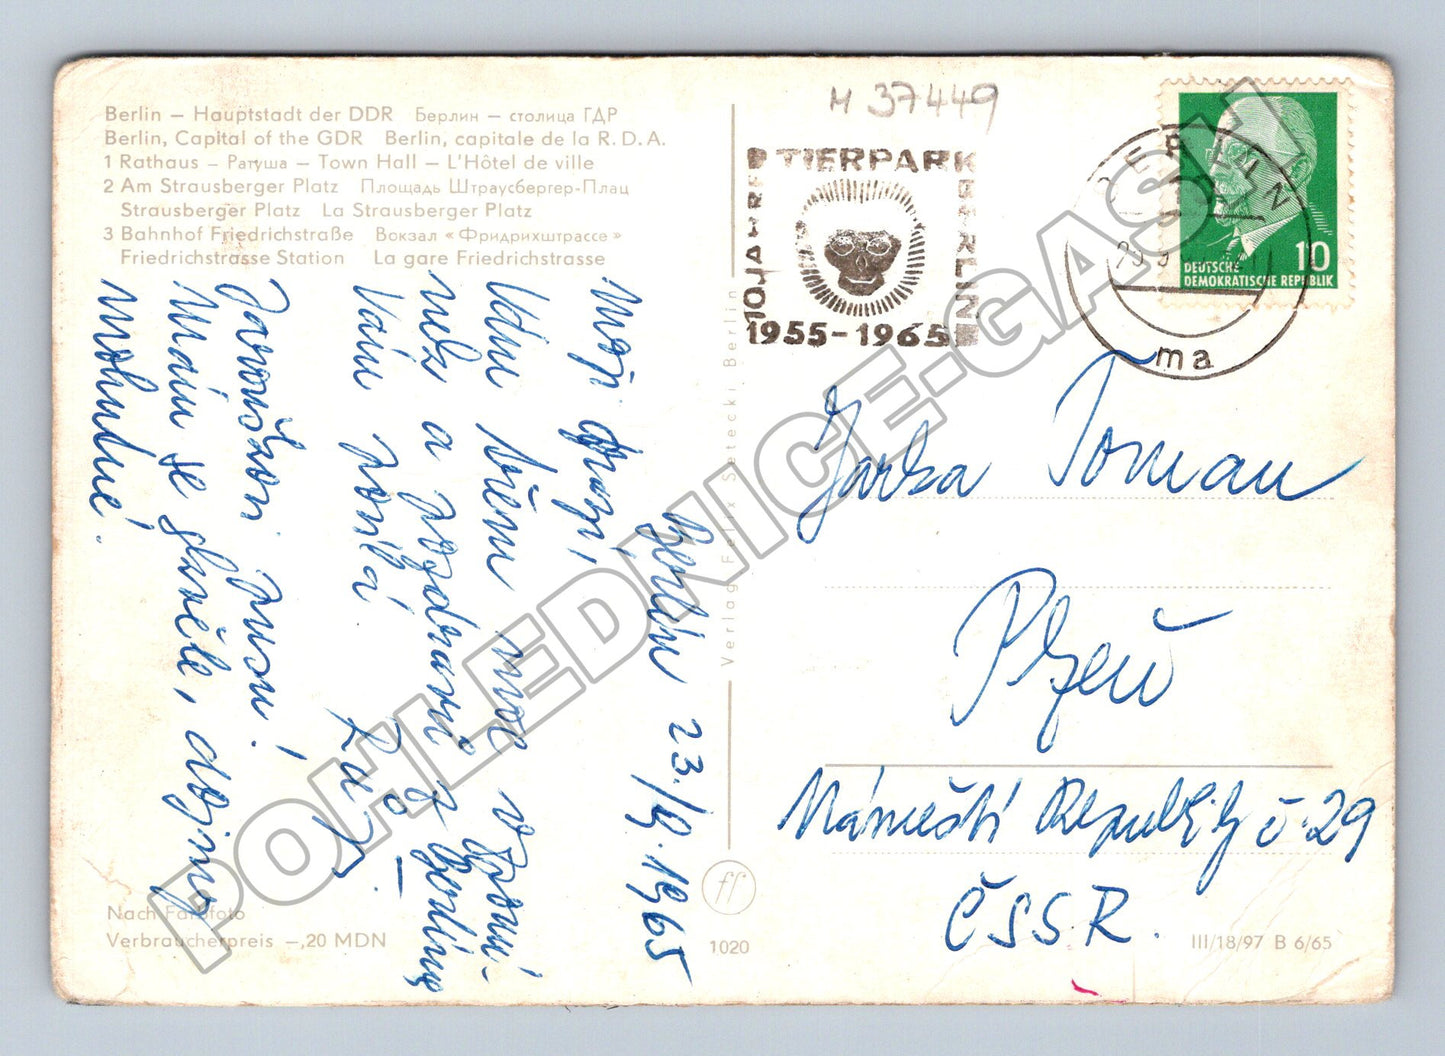 Berlin – Hauptstadt der DDR Берлин – столица ГДР
Berlin, Capital of the GDR Berlin, capitale de la R.D.A.
1 Rathaus – Ратуша – Town Hall – L'Hôtel de ville
2 Am Strausberger Platz Площадь Штраусбергер-Плац
Strausberger Platz La Strausberger Platz
3 Bahnhof Friedrichstraße Вокзал «Фридрихштрассе»
Friedrichstrasse Station La gare Friedrichstrasse
M 37449
10 JAHRE TIERPARK BERLIN
1955-1965
BERLIN
ma
10
DEUTSCHE
DEMOKRATISCHE REPUBLIK
Berlin 23./9.1965
Moji drazí,
Vám všem moc vzpomí-
nek a pozdravů z Berlína
Vám posílá
Jarouškovi pusu!
Mám se skvěle, dojmy
mohutné!
Jarka Toman
Plzeň
Náměstí Republiky č. 29
ČSSR.
Verlag Felix Setecki, Berlin
ff
Nach Farbfoto
Verbraucherpreis –,20 MDN
1020
III/18/97 B 6/65
POHLEDNICE-GASL